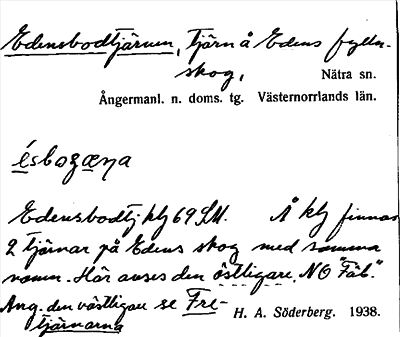 Edensbodtjärnen, tjärn å Edens
skog, Nätra sn.
Ångermanl. n. doms. tg. Västernorrlands län.
ésboʒæṇa
Edensbodtj klj 69 SM. Å klj finnas
2 tjärnar på Edens skog med samma
namn. Här avses den östligare, NO "Fäb."
Ang. den västligare se Fre-
tjärnarna H. A. Söderberg. 1938.